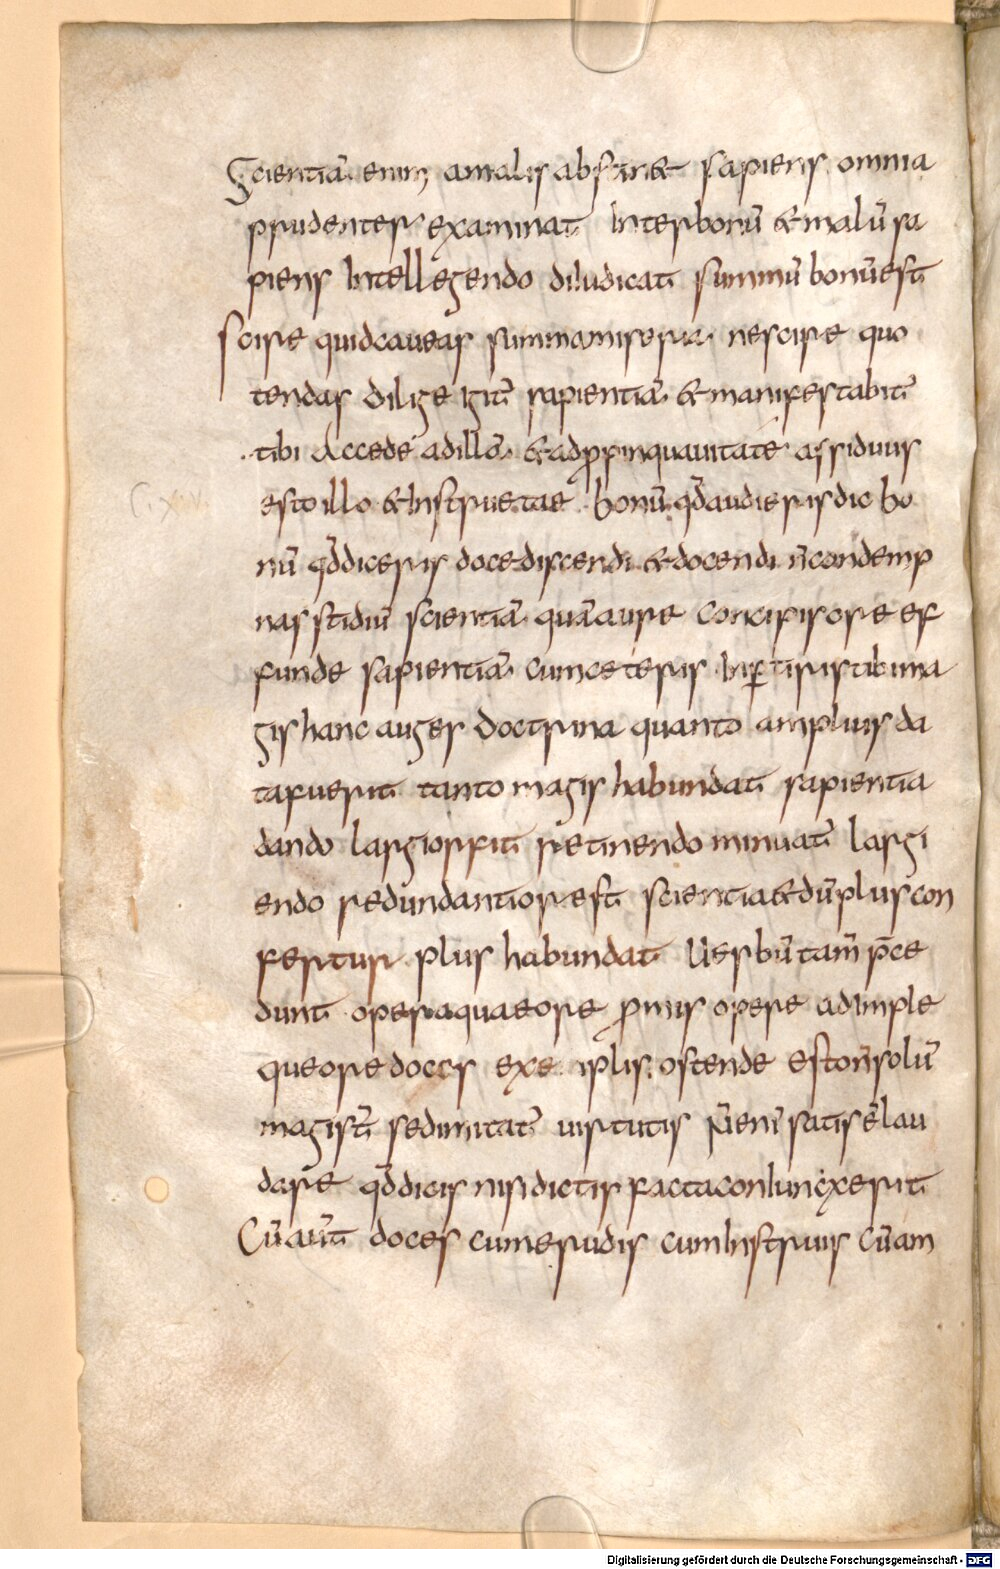 Scientiā enim amalis abstinet sapiens omnia
prudenter examinat Interbonū &malū sa
piens Intellegendo diIudicat summū bonūest
scire quidcaueas summamiseria nescire quo
tendas Dilige igit̄ sapientiā &manifestabit̄
tibi Accede adillā &adpropinquauitate assiduus
esto illo &Instruetae bonū qđaudieris dic bo
nū qđdiceris doce discendi &docendi ñcondemp
nas studiū scientiā quāaure concipis ore ef
funde sapientiā cumceteris Inꝑtiris tibi ma
gis hanc auges Doctrina quanto amplius da
tafuerit tanto magis habundat sapientia
dando largiorfit retinendo minuat̄ largi
endo redundantior est scientia&dūplus con
fertur plus habundat Uerbū tam̄ p̄ce
dunt opera quae ore promis opere adimple
que ore doces exemplis ostende esto ñ solū
magist̄ sed imitat̄ uirtutis Ñ eni satis ē lau
dare qđ dicis nisi dictis facta conIunxerit
Cū aut̄ doces cum erudis cum Instruis Cū am
Digitalisierung gefördert durch die Deutsche Forschungsgemeinschaft - DFG